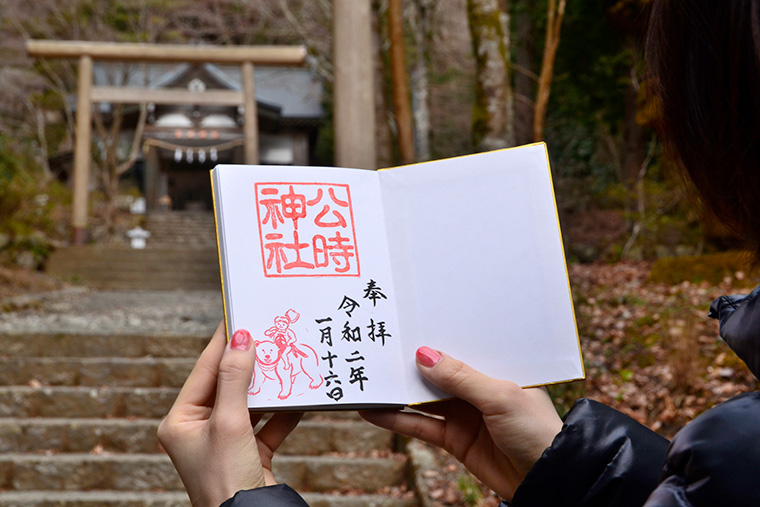 公時
神社
奉拝
令和二年
一月十六日